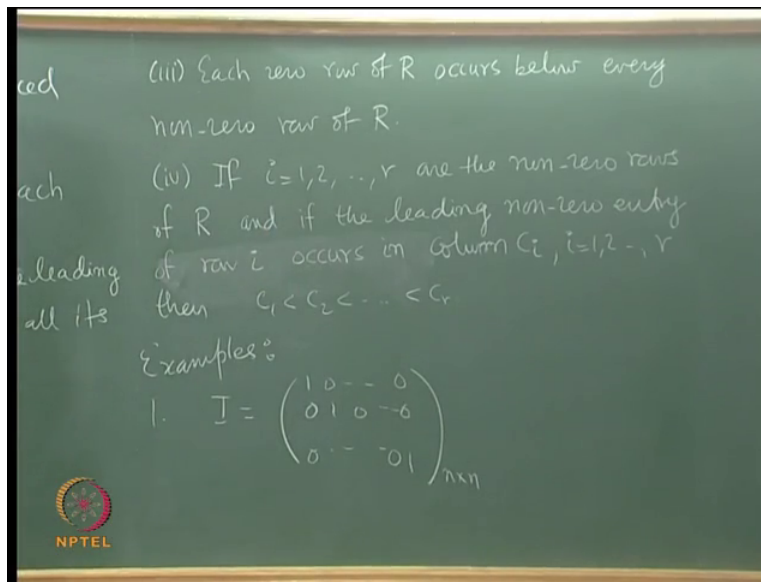 ced
ach
e leading
all its
(iii) Each zero row of R occurs below every
non-zero row of R.
(iv) If i=1,2,..,r are the non-zero rows
of R and if the leading non-zero entry
of row i occurs in column Ci, i=1,2-.,r
then C₁ < C₂ < ... < Cr
Examples:
1. I = ( 1 0 - - 0
0 1 0 - - 0
0 . - - 0 1 ) n×n
NPTEL